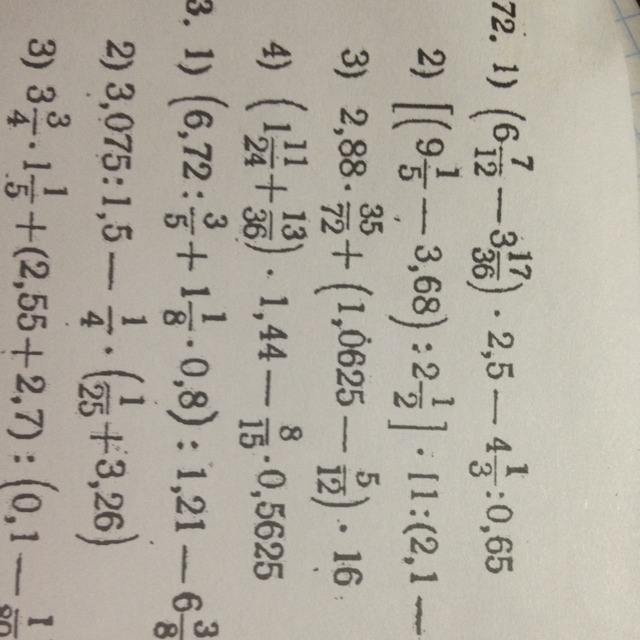 72. 1) (6 7/12 − 3 17/36) · 2,5 − 4 1/3 : 0,65
2) [(9 1/5 − 3,68) : 2 1/2] · [1:(2,1 −
3) 2,88 · 35/72 + (1,0625 − 5/12) · 16
4) (1 11/24 + 13/36) · 1,44 − 8/15 · 0,5625
3. 1) (6,72 : 3/5 + 1 1/8 · 0,8) : 1,21 − 6 3/8
2) 3,075 : 1,5 − 1/4 · (1/25 + 3,26)
3) 3 3/4 · 1 1/5 + (2,55 + 2,7) : (0,1 − 1/80